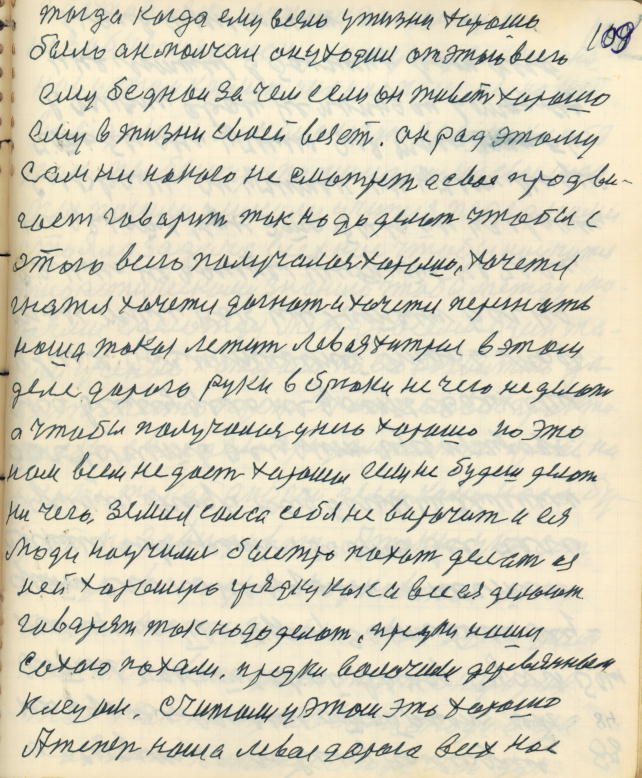 тогда когда ему всем у жизни хорошо
109
было а н-молчал он уходил от этого всего
ему бедной за чем если он живет хорошо
ему в жизни своей везет. он рад этому
сам ни на кого не смотрит а свое продви-
гает говарит так надо делат чтобы с
этого всего получалося хорошо, хочети
гнатися хочети догнат и хочети перегнать
наша такая лежит левая хитрая в этом
деле дорога руки в брюки не чего не делат
а чтобы получалося у него хорошо но это
нам всем не дает хороши если не будеш делат
ни чего. Земля сама себя не ворочат и ея
люди научилис быстро пахат делат на
ней хорошую грядку как и все ея делают
говарят так надо делат, предки наши
сохою пахали. предки волочили деревянным
клецом. считали у этом это хорошо
А тепер наша левая дорога всех нас